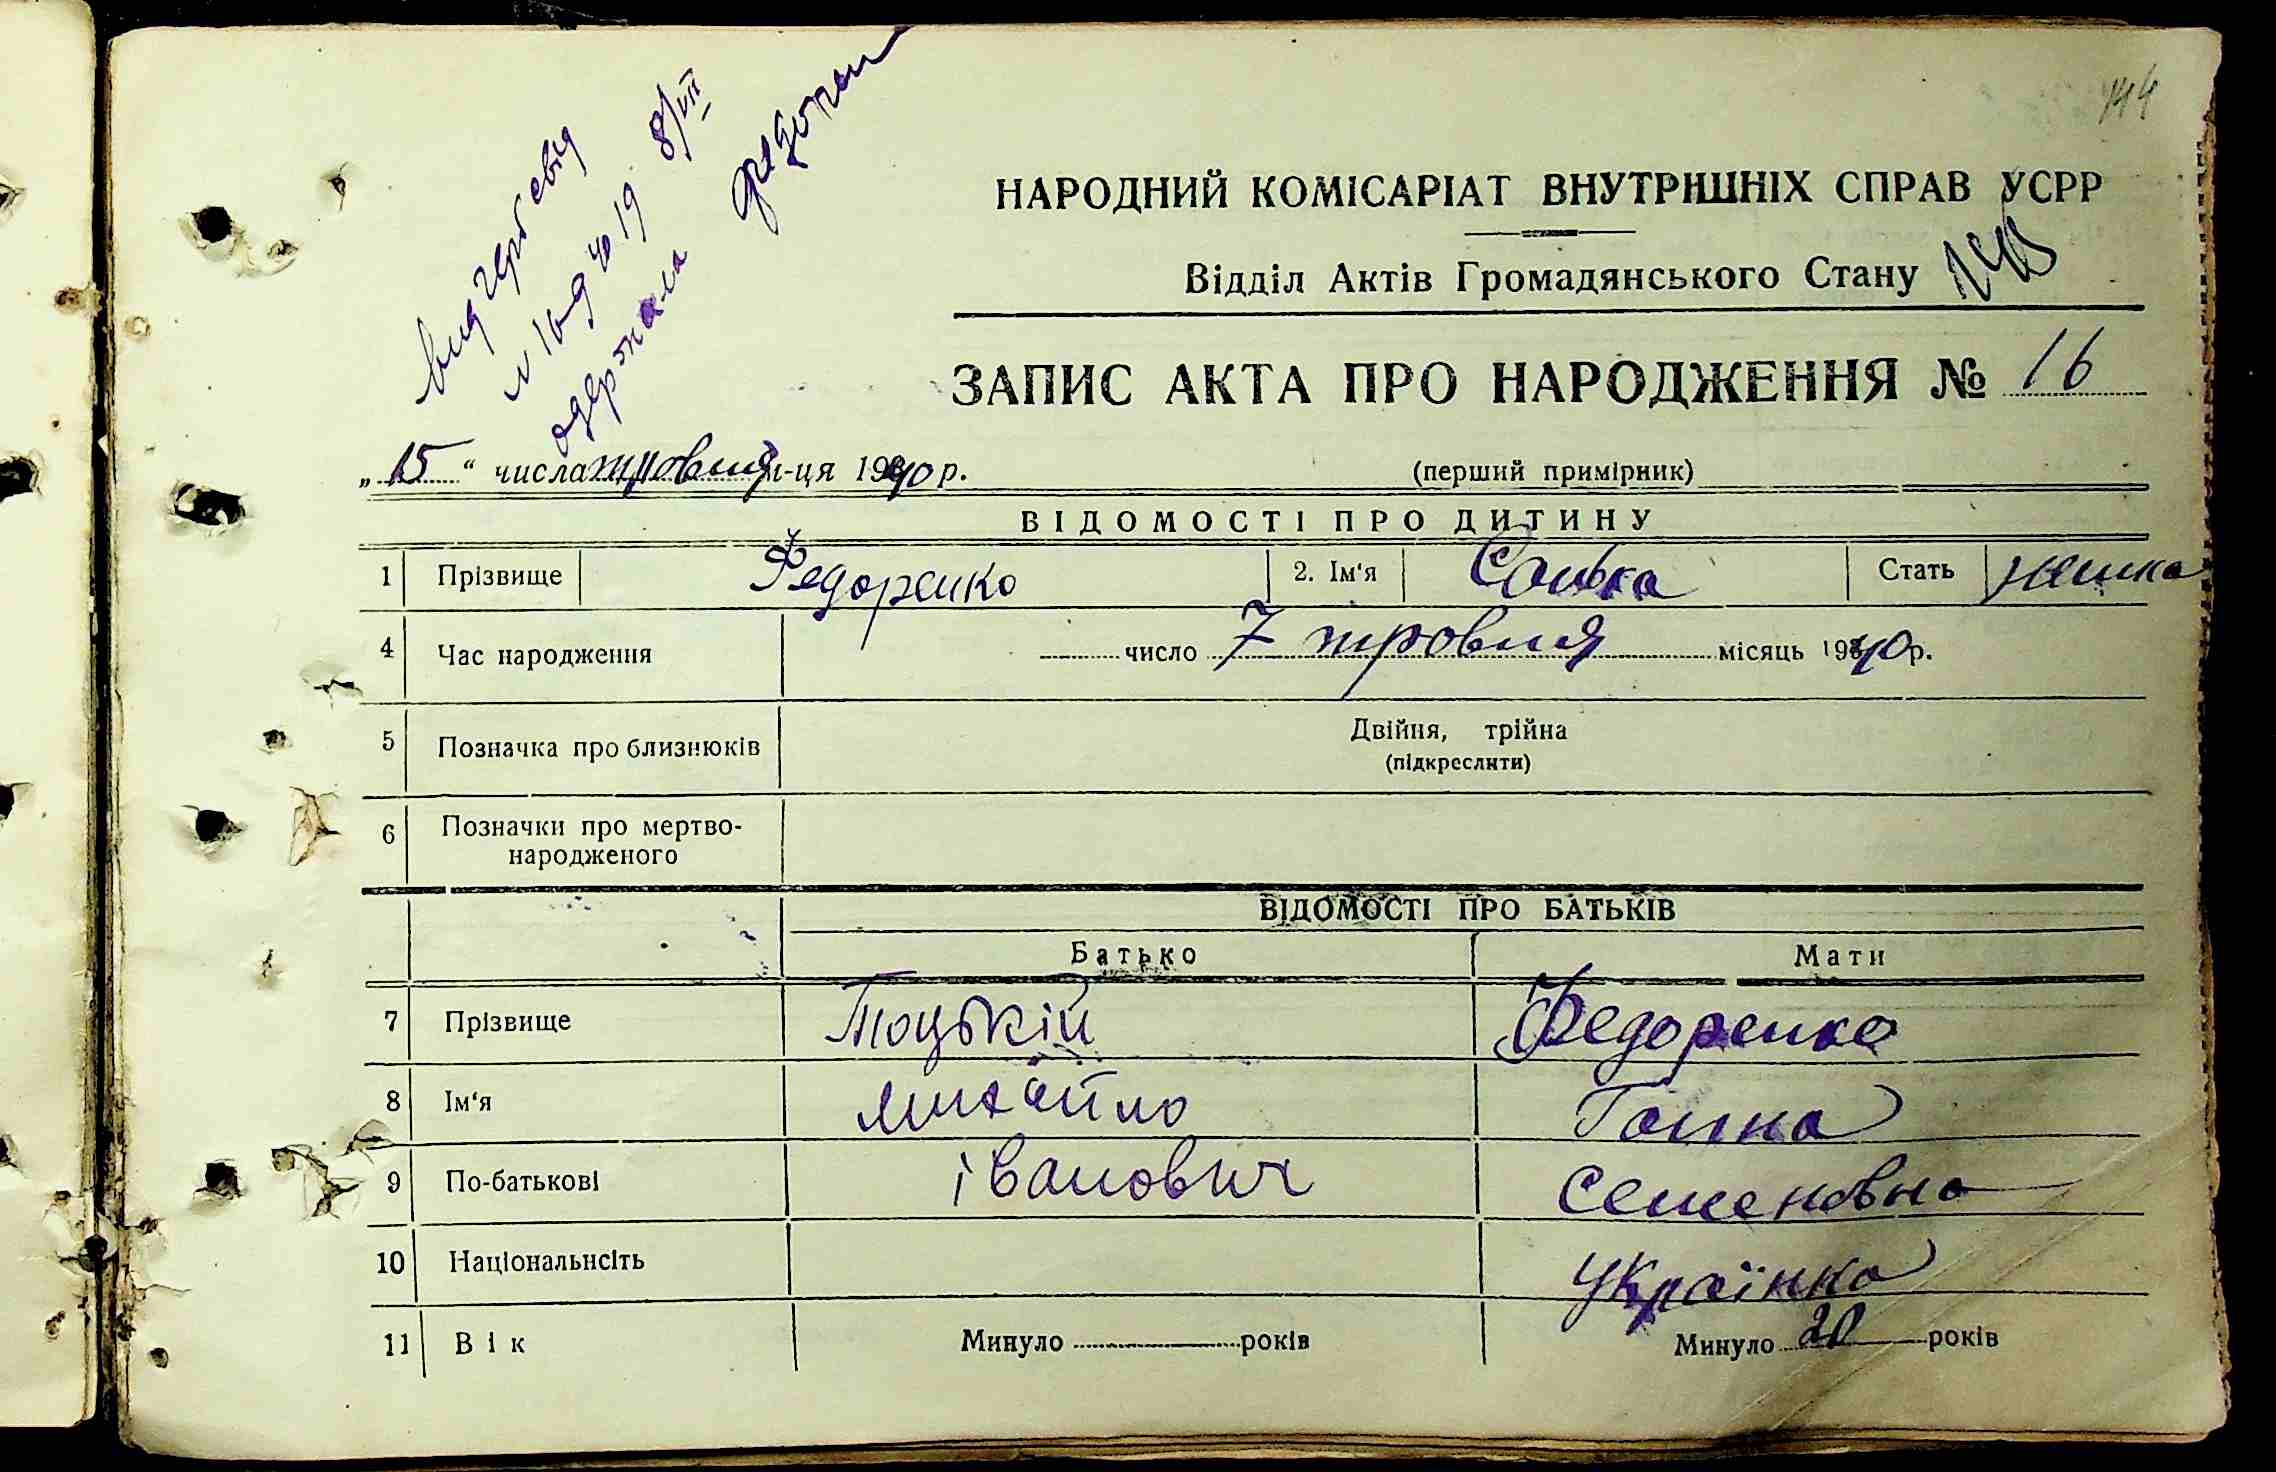 144
НАРОДНИЙ КОМІСАРІАТ ВНУТРІШНІХ СПРАВ УСРР
Відділ Актів Громадянського Стану
ЗАПИС АКТА ПРО НАРОДЖЕННЯ № 16
„15“ числа травня м-ця 1940 р.
(перший примірник)
ВІДОМОСТІ ПРО ДИТИНУ
1 Прізвище Федоренко 2. Ім'я Стать
4 Час народження число 7 травня місяць 1940 р.
5 Позначка про близнюків Двійня, трійна
(підкреслити)
6 Позначки про мертво-
народженого
ВІДОМОСТІ ПРО БАТЬКІВ
Батько Мати
7 Прізвище Тоцькій Федоренко
8 Ім'я михайло Ганна
9 По-батькові іванович Семеновна
10 Національнсіть Українка
11 Вік Минуло років Минуло 20 років